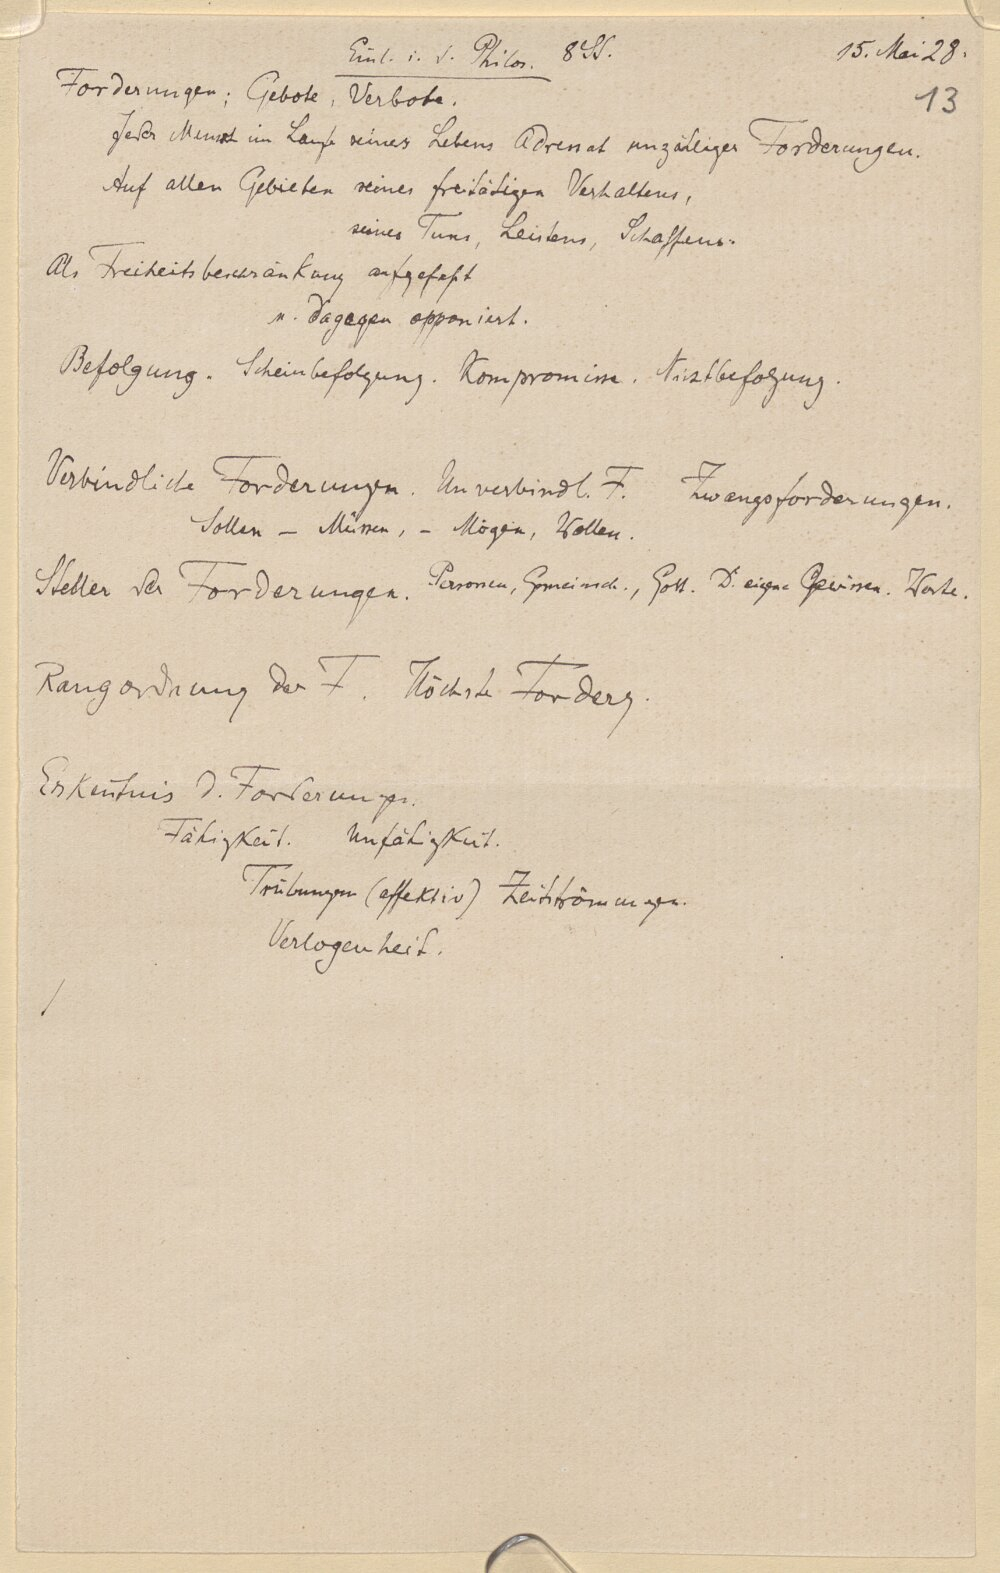 Einl. i. d. Philos. 8 St. 15. Mai 28.
13
Forderungen; Gebote, Verbote.
Jeder Mensch im Laufe seines Lebens Adressat unzähliger Forderungen.
Auf allen Gebieten seines freitätigen Verhaltens,
seines Tuns, Leistens, Schaffens.
Als Freiheitsbeschränkung aufgefaßt
u. dagegen opponiert.
Befolgung. Scheinbefolgung. Kompromisse. Nichtbefolgung.
Verbindliche Forderungen. Unverbindl. F. Zwangsforderungen.
Sollen – Müssen, – Mögen, Wollen.
Steller der Forderungen. Personen, Gemeinsch., Gott. D. eigene Gewissen. Werte.
Rangordnung der F. Höchste Forderg.
Erkenntnis d. Forderungn.
Fähigkeit. Unfähigkeit.
Trübungen (affektiv) Zeitströmungen.
Verlogenheit.
/